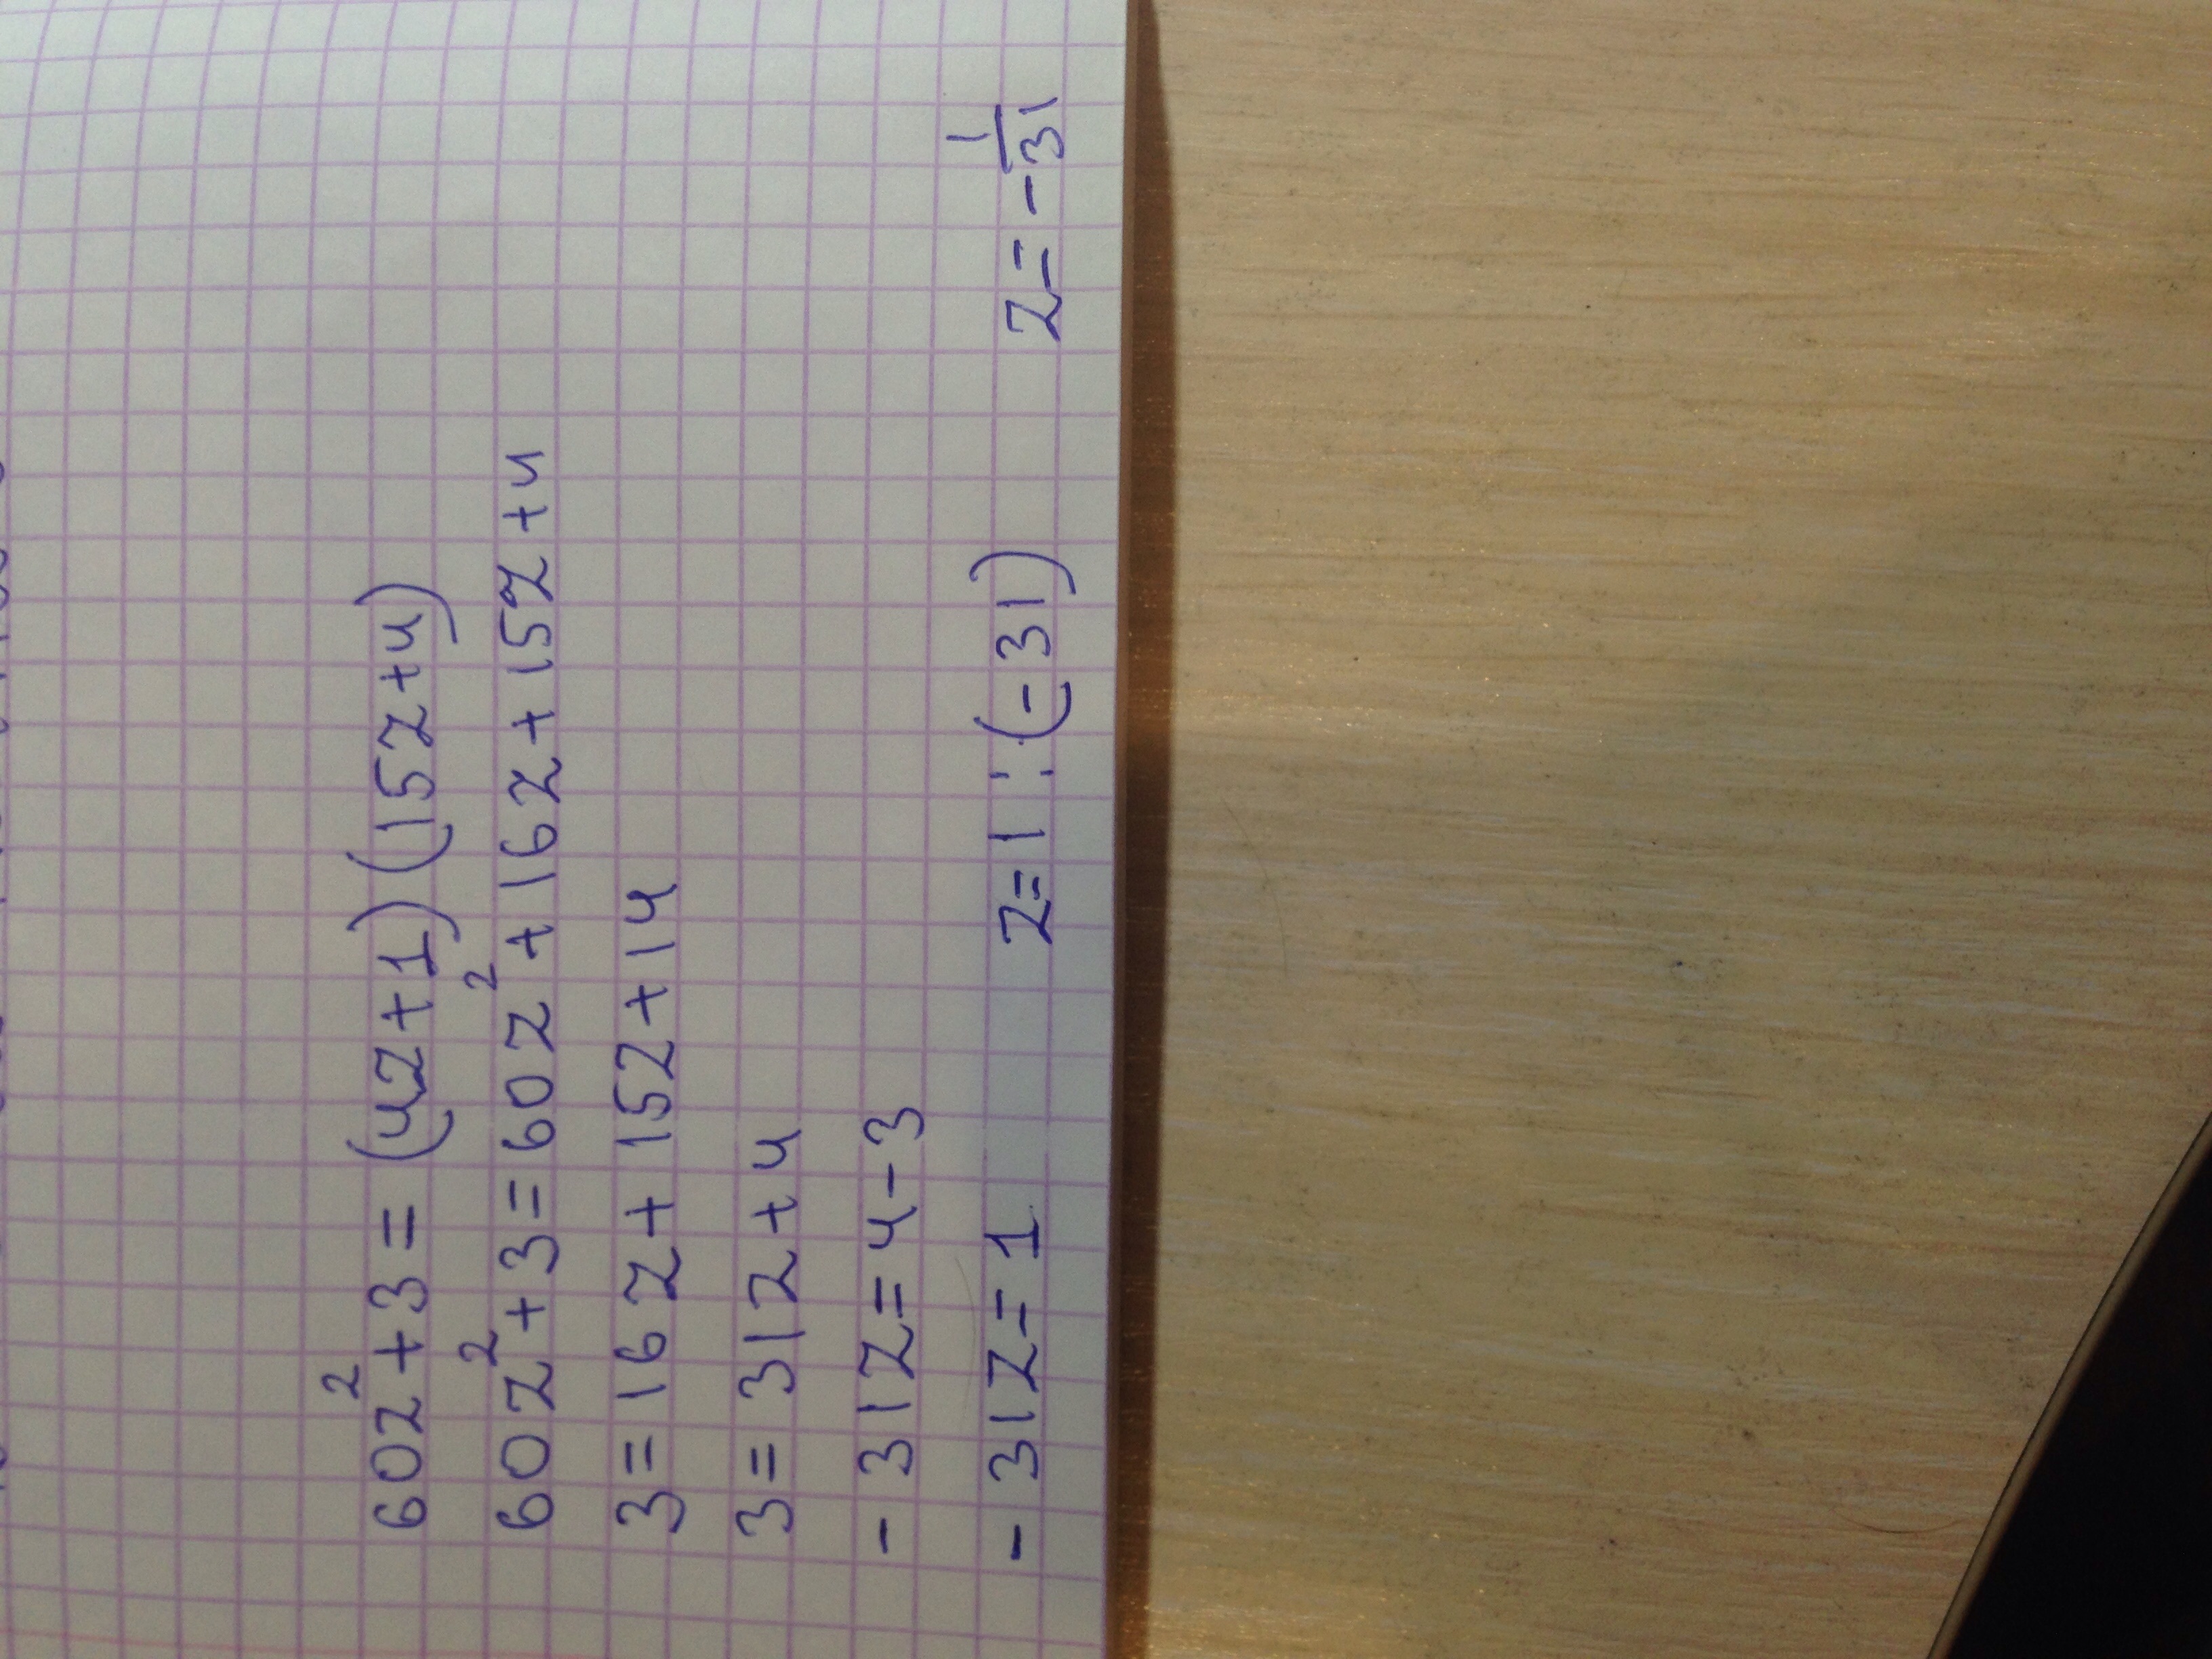 60z²+3=(4z+1)(15z+4)
60z²+3=60z²+16z+15z+4
3=16z+15z+14
3=31z+4
-31z=4-3
-31z=1 z=1:(-31) z=-1/31